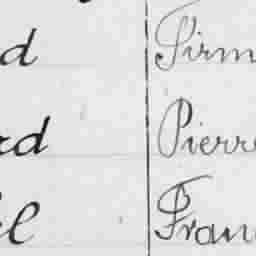 d Firm
rd Pierre
el Fran